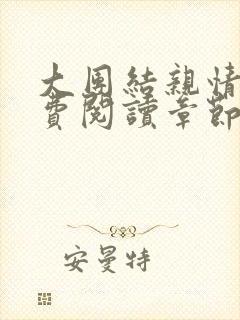 大團結親情
費閱讀章節
安曼特